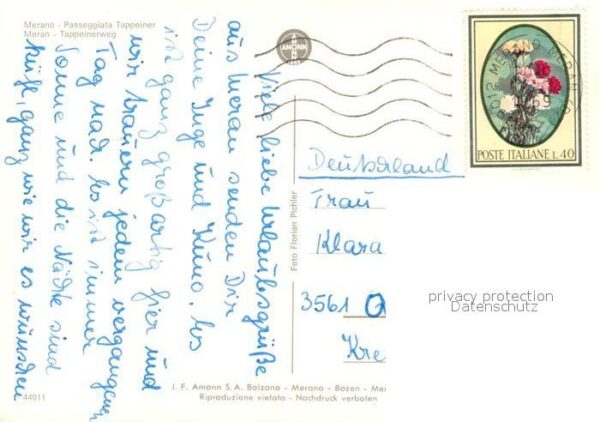 Merano - Passeggiata Tappeiner
Meran - Tappeinerweg
Viele liebe Urlaubsgrüße
aus Meran senden Dir
Deine Inge und Kuno. Es
ist ganz großartig hier und
wir trauern jedem vergangenen
Tag nach. Es ist immer
Sonne und die Nächte sind
kühl, ganz wie wir es wünschen
AMONN
Foto Florian Pichler
POSTE ITALIANE L.40
MERANO
Deutschland
Frau
Klara
3561
Kre
privacy protection
Datenschutz
44011
J. F. Amonn S.A. Bolzano - Merano - Bozen - Me
Riproduzione vietata - Nachdruck verboten